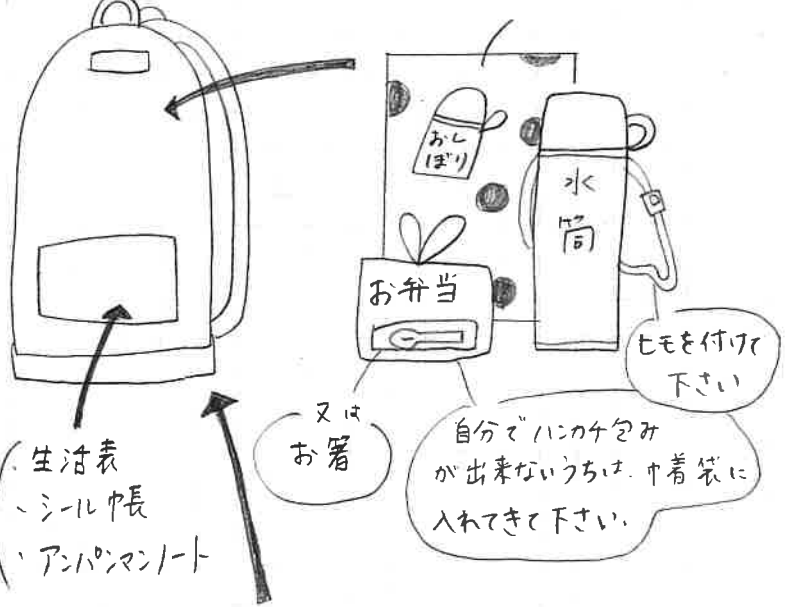 おし
ぼり
水
筒
お弁当
ヒモを付けて
下さい
又は
お箸
自分でハンカチ包み
が出来ないうちは、巾着袋に
入れてきて下さい。
、生活表
、シール帳
、アンパンマンノート